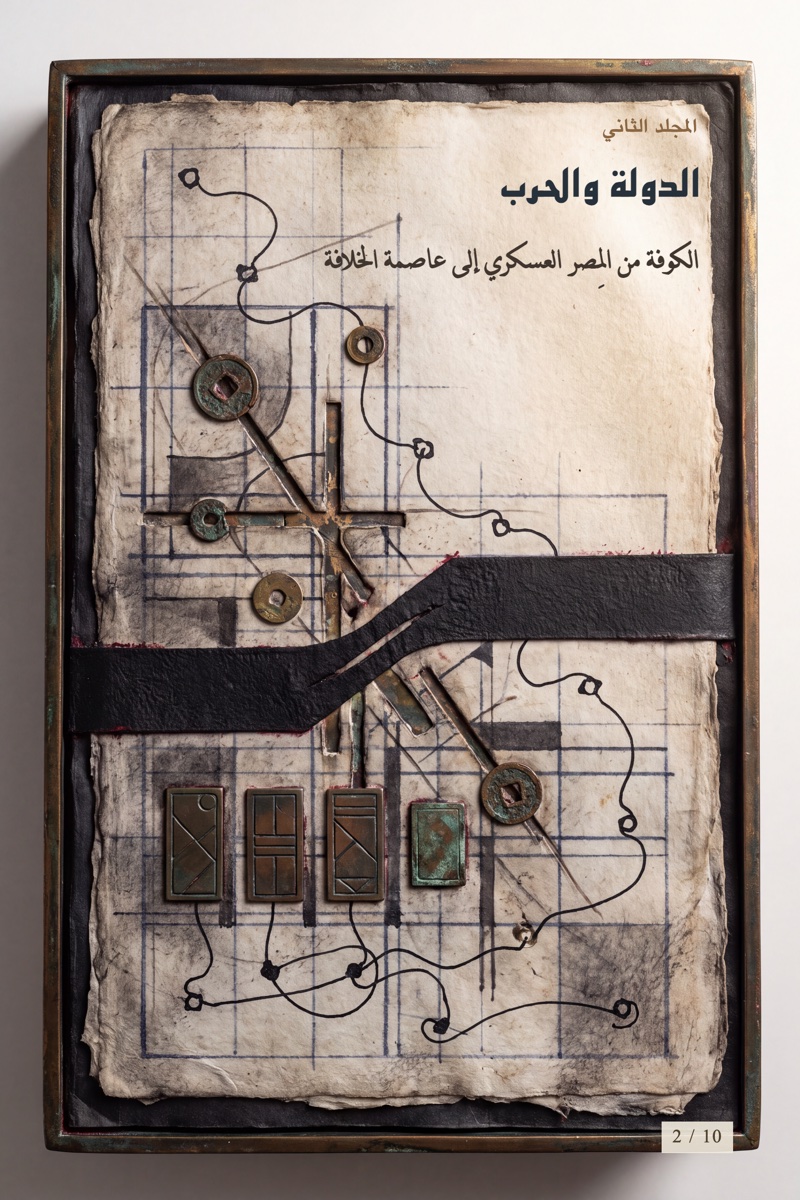 المجلد الثاني
الدولة والحرب
الكوفة من المِصر العسكري إلى عاصمة الخلافة
2 / 10